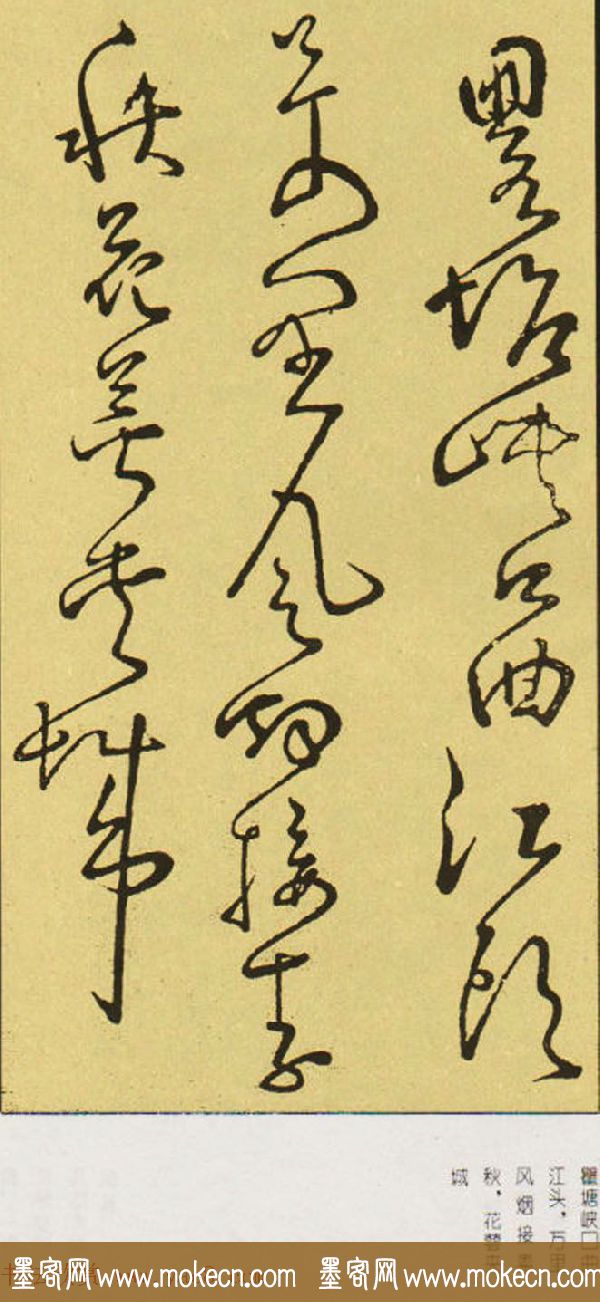 瞿塘峽口曲江頭
萬里風煙接素
秋花萼夾城
瞿塘峡口
江头，万里
风烟接素
秋，花萼夹
城
墨客网 www.mokecn.com 墨客网 www.mokecn.com